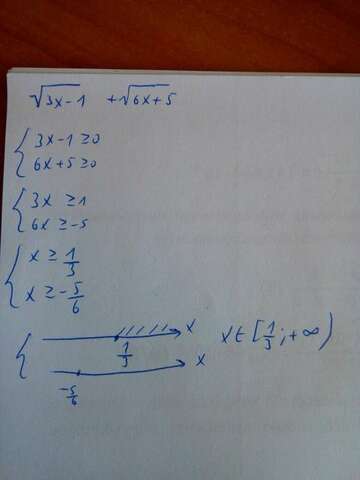 √3x-1 + √6x+5
{ 3x-1 ≥ 0
6x+5 ≥ 0
{ 3x ≥ 1
6x ≥ -5
{ x ≥ 1/3
x ≥ -5/6
{ 1/3 x x ∈ [1/3; +∞)
-5/6 x